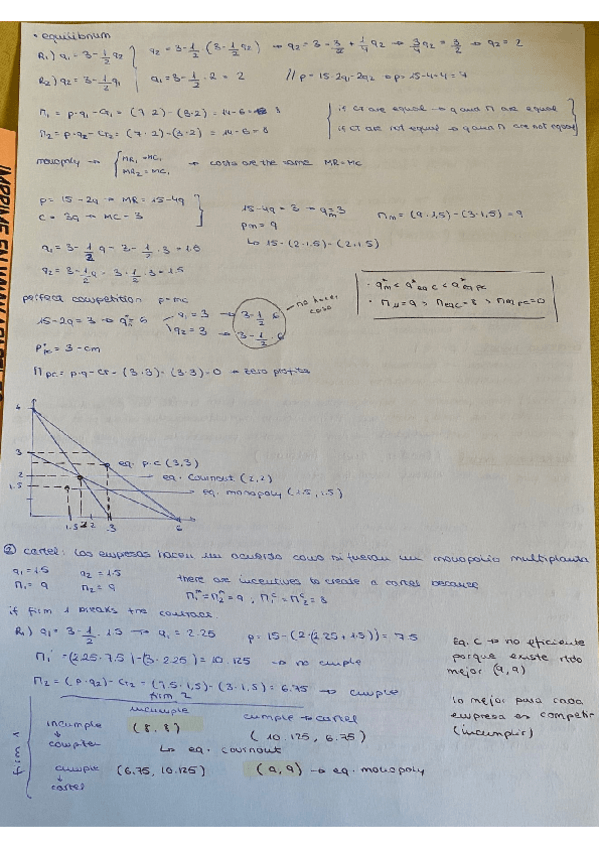 • equilibrium
R1) q1 = 3 - 1/2 q2
q2 = 3 - 1/2 (3 - 1/2 q2) → q2 = 3 - 3/2 + 1/4 q2 → 3/4 q2 = 3/2 → q2 = 2
R2) q2 = 3 - 1/2 q1
q1 = 3 - 1/2 · 2 = 2 // p = 15 - 2q1 - 2q2 → p = 15 - 4 - 4 = 7
Π1 = p · q1 - CT1 = (7 · 2) - (3 · 2) = 14 - 6 = 8
Π2 = p · q2 - CT2 = (7 · 2) - (3 · 2) = 14 - 6 = 8
if CT are equal → q and Π are equal
if CT are not equal → q and Π are not equal
monopoly → MR1 = MC1
MR2 = MC2
→ costs are the same MR = MC
p = 15 - 2q → MR = 15 - 4q
C = 3q → MC = 3
15 - 4q = 3 → qm = 3
pm = 9
↳ 15 - (2 · 1.5) - (2 · 1.5)
Πm = (9 · 1.5) - (3 · 1.5) = 9
q1 = 3 - 1/2 q = 3 - 1/2 · 3 = 1.5
q2 = 3 - 1/2 q = 3 - 1/2 · 3 = 1.5
perfect competition p = mc
15 - 2q = 3 → q = 6
q1 = 3 → 3 - 1/2 6
q2 = 3 → 3 - 1/2 · 6
no hacer caso
• q*m < q*eq C < q*eq pc
• ΠM = 9 > Πeq C = 8 > Πeq PC = 0
P*pc = 3 = cm
Πpc = p · q - CT = (3 · 3) - (3 · 3) = 0 → zero profits
4
3
2
1.5
eq. p.c (3,3)
eq. Cournout (2,2)
eq. monopoly (1.5, 1.5)
1.5 2 3 6
② cartel: las empresas hacen un acuerdo como si fueran un monopolio multiplanta
q1 = 1.5 q2 = 1.5
Π1 = 9 Π2 = 9
there are incentives to create a cartel because
Π1m = Π2m = 9, Π1c = Π2c = 8
if firm 1 breaks the contract.
R1) q1 = 3 - 1/2 · 1.5 → q1 = 2.25 p = 15 - (2 · (2.25 + 1.5)) = 7.5
Π1 = (2.25 · 7.5) - (3 · 2.25) = 10.125 → no cumple
Π2 = (p · q2) - CT2 = (7.5 · 1.5) - (3 · 1.5) = 6.75 → cumple
eq. C → no eficiente
porque existe
mejor (9,9)
lo mejor para cada
empresa es competir
(incumplir)
firm 2
incumple
cumple → cartel
firm 1
incumple
(8, 8)
(10.125, 6.75)
↳ eq. cournout
cumple
cartel
(6.75, 10.125)
(9,9) → eq. monopoly